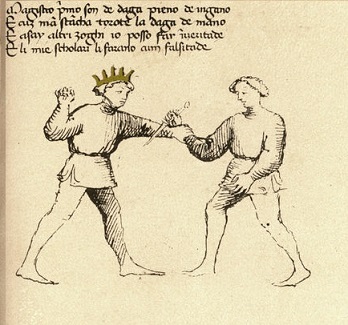 Magistro p̃mo son de daga pieno de ingano
E cū mā stācha torote la daga de mano
E asay altri zoghi io posso far in ueritade
E li mie scholari li farano cum falsitade